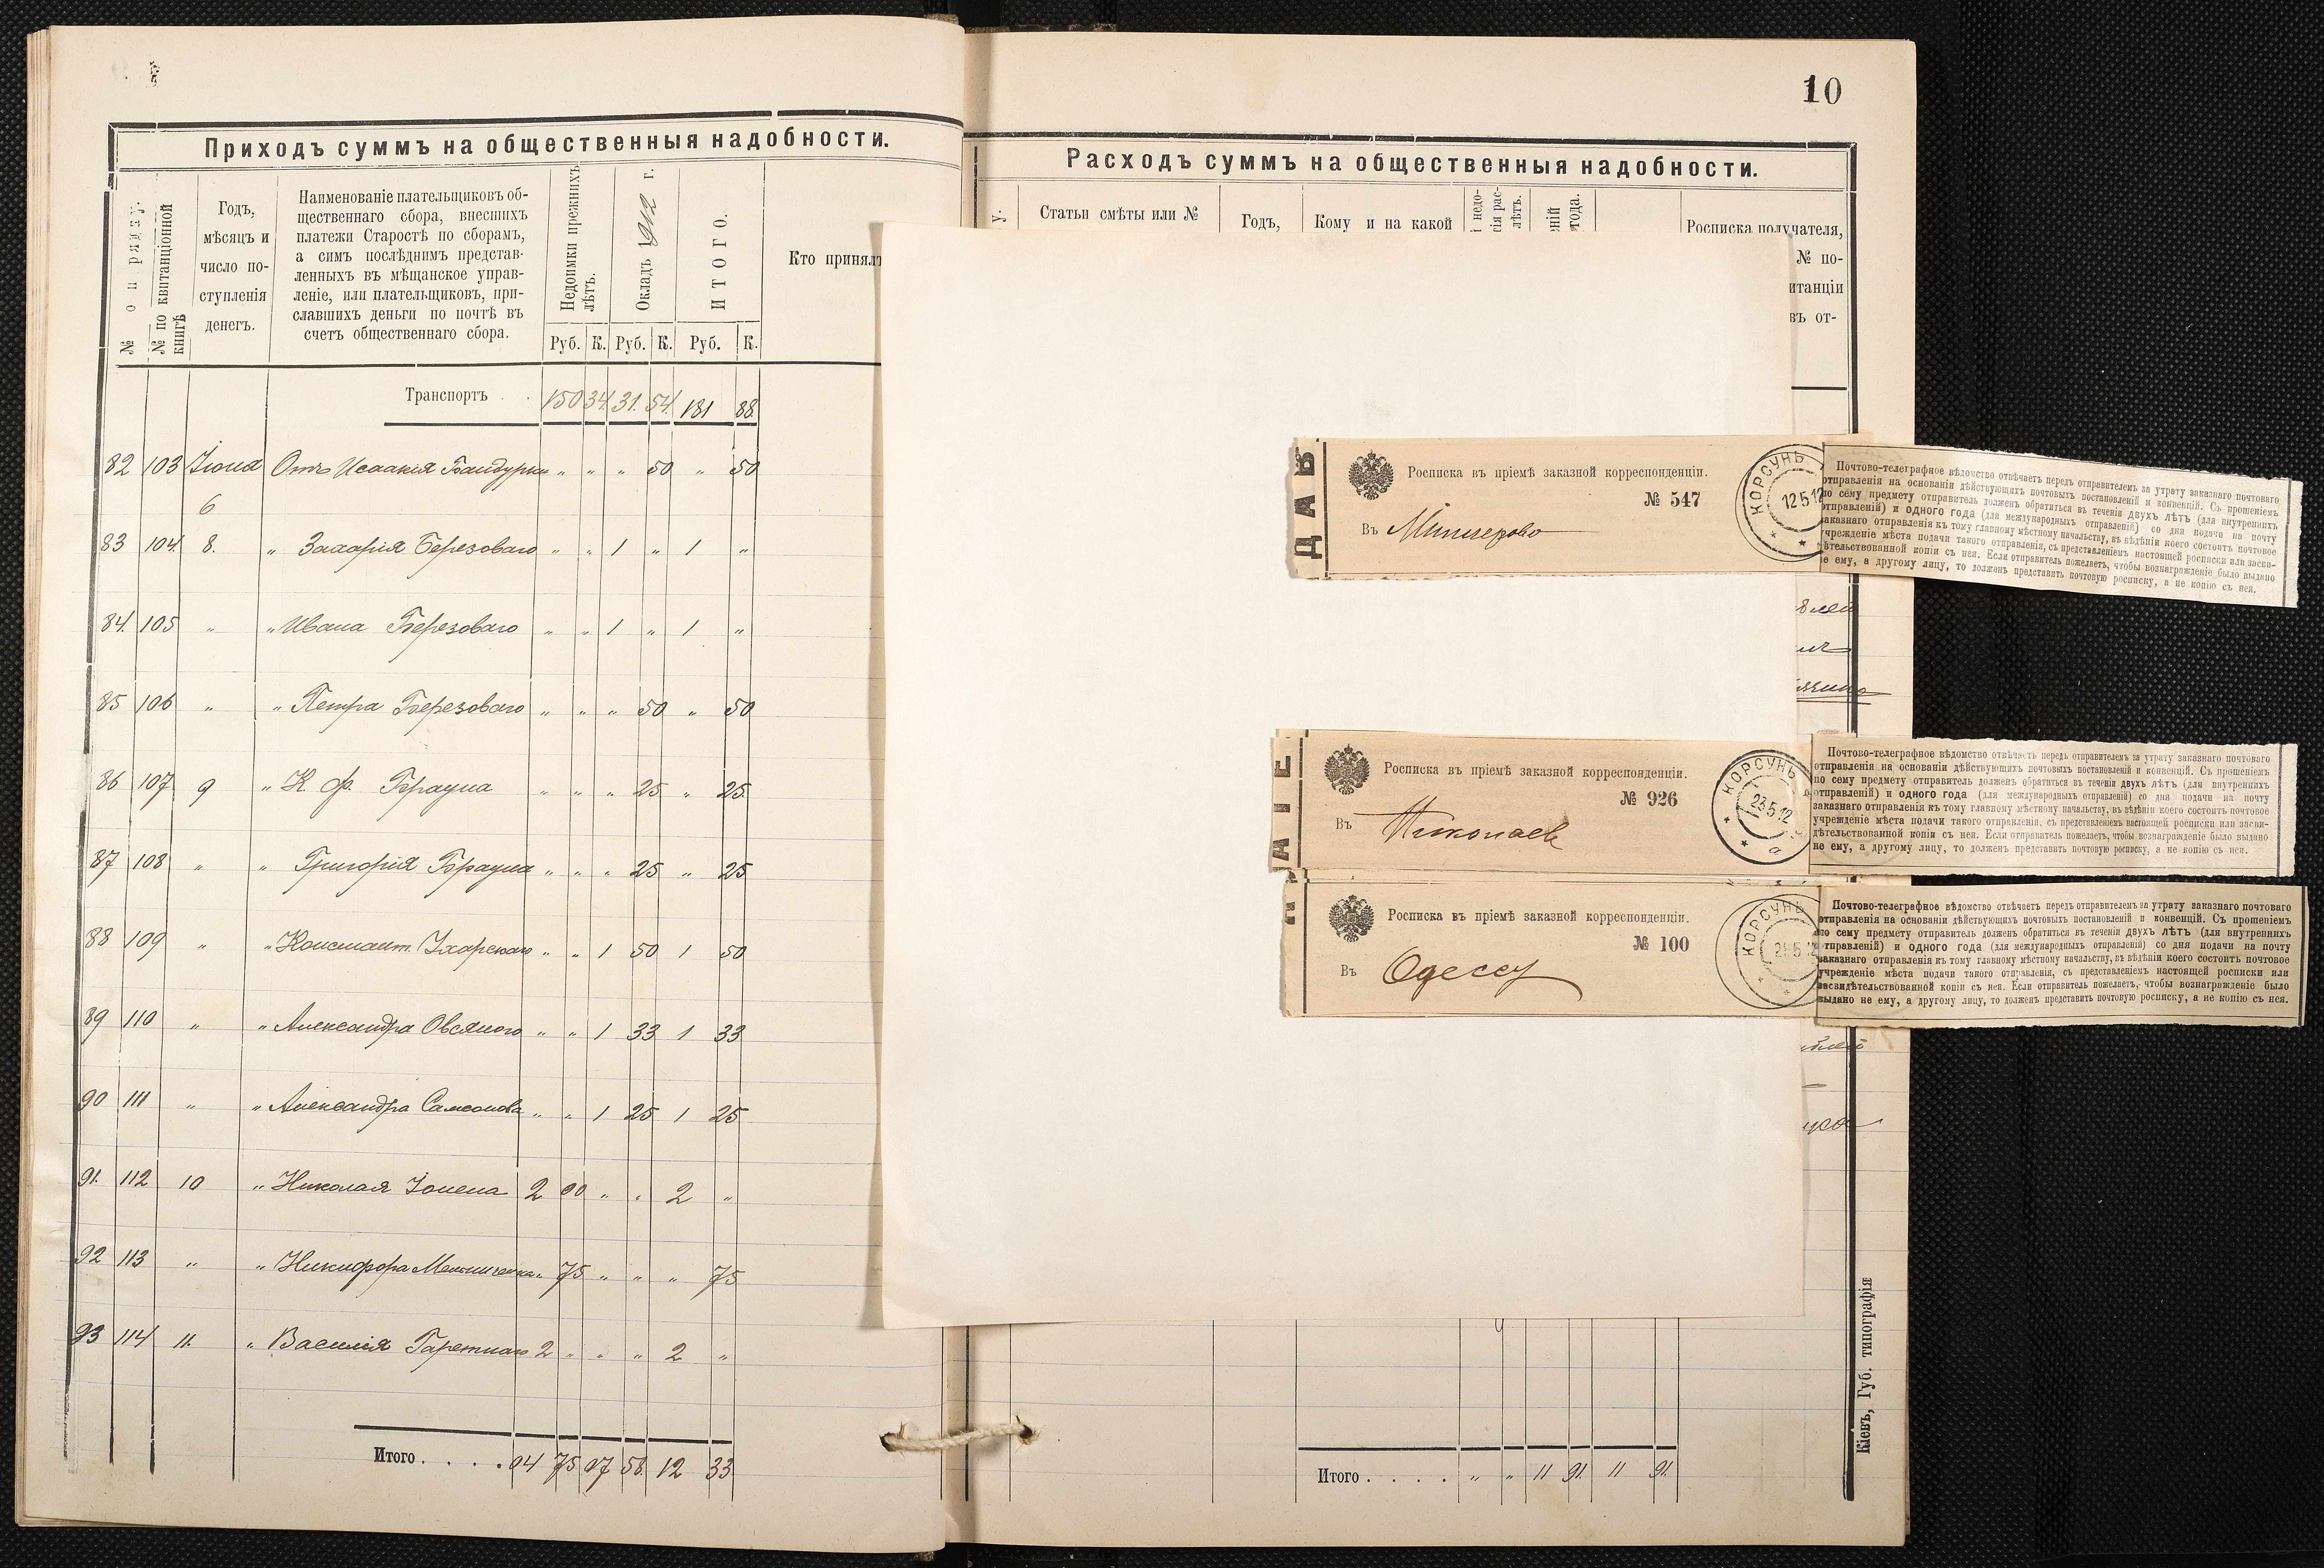 10
Приходъ суммъ на общественныя надобности.
№ по ряду.
№ по квитанціонной книгѣ
Годъ,
мѣсяцъ и
число по-
ступленія
денегъ.
Наименованіе плательщиковъ об-
щественнаго сбора, внесшихъ
платежи Старостѣ по сборамъ,
а симъ послѣднимъ представ-
ленныхъ въ мѣщанское управ-
леніе, или плательщиковъ, при-
славшихъ деньги по почтѣ въ
счетъ общественнаго сбора.
Недоимки прежнихъ лѣтъ.
Окладъ 1912 г.
ИТОГО.
Кто принялъ
Руб. К. Руб. К. Руб. К.
Транспортъ . . 150 34 31. 54. 181 88.
82 103 Іюня Отъ Исаакія Бандурки „ „ „ 50 „ 50
6
83 104. 8. „ Захарія Березоваго „ „ 1 „ 1 „
84. 105 „ „ Ивана Березоваго „ „ 1 „ 1 „
85 106 „ „ Петра Березоваго „ „ „ 50 „ 50
86 107 9 „ К. Ф. Брауна „ „ „ 25 „ 25.
87 108 „ „ Григорія Брауна „ „ „ 25 „ 25
88 109 „ „ Констант. „ „ 1 50 1 50
89 110 „ „ Александра Овсяного „ „ 1 33 1 33
90 111 „ „ Александра Самсонова „ „ 1 25 1 25
91. 112 10 „ Николая 2 00 „ „ 2 „
92 113 „ „ Никифора Мельниченка „ 75 „ „ „ 75
93 114 11. „ Василія 2 „ „ „ 2 „
Итого. . . . . 04 75 07 58. 12 33
Расходъ суммъ на общественныя надобности.
у.
Статьи смѣты или №
Годъ,
Кому и на какой
недо-
ія рас-
лѣтъ.
ній
года.
Росписка получателя,
№ по-
итанціи
въ от-
Д А В
Росписка въ пріемѣ заказной корреспонденціи.
№ 547
Въ
КОРСУНЬ
12 5 12
Почтово-телеграфное вѣдомство отвѣчаетъ передъ отправителемъ за утрату заказнаго почтоваго
отправленія на основаніи дѣйствующихъ почтовыхъ постановленій и конвенцій. Съ прошеніемъ
по сему предмету отправитель долженъ обратиться въ теченіи двухъ лѣтъ (для внутреннихъ
отправленій) и одного года (для международныхъ отправленій) со дня подачи на почту
заказнаго отправленія къ тому главному мѣстному начальству, въ вѣдѣніи коего состоитъ почтовое
учрежденіе мѣста подачи такого отправленія, съ представленіемъ настоящей росписки или засви-
дѣтельствованной копіи съ нея. Если отправитель пожелаетъ, чтобы вознагражденіе было выдано
не ему, а другому лицу, то долженъ представить почтовую росписку, а не копію съ нея.
Росписка въ пріемѣ заказной корреспонденціи.
№ 926
Въ Николаев
КОРСУНЬ
23 5 12
а
Почтово-телеграфное вѣдомство отвѣчаетъ передъ отправителемъ за утрату заказнаго почтоваго
отправленія на основаніи дѣйствующихъ почтовыхъ постановленій и конвенцій. Съ прошеніемъ
по сему предмету отправитель долженъ обратиться въ теченіи двухъ лѣтъ (для внутреннихъ
отправленій) и одного года (для международныхъ отправленій) со дня подачи на почту
заказнаго отправленія къ тому главному мѣстному начальству, въ вѣдѣніи коего состоитъ почтовое
учрежденіе мѣста подачи такого отправленія, съ представленіемъ настоящей росписки или засви-
дѣтельствованной копіи съ нея. Если отправитель пожелаетъ, чтобы вознагражденіе было выдано
не ему, а другому лицу, то долженъ представить почтовую росписку, а не копію съ нея.
Росписка въ пріемѣ заказной корреспонденціи.
№ 100
Въ Одессу
КОРСУНЬ
Почтово-телеграфное вѣдомство отвѣчаетъ передъ отправителемъ за утрату заказнаго почтоваго
отправленія на основаніи дѣйствующихъ почтовыхъ постановленій и конвенцій. Съ прошеніемъ
по сему предмету отправитель долженъ обратиться въ теченіи двухъ лѣтъ (для внутреннихъ
отправленій) и одного года (для международныхъ отправленій) со дня подачи на почту
заказнаго отправленія къ тому главному мѣстному начальству, въ вѣдѣніи коего состоитъ почтовое
учрежденіе мѣста подачи такого отправленія, съ представленіемъ настоящей росписки или
засвидѣтельствованной копіи съ нея. Если отправитель пожелаетъ, чтобы вознагражденіе было
выдано не ему, а другому лицу, то долженъ представить почтовую росписку, а не копію съ нея.
Итого . . . . . „ „ 11 91. 11 91.
Кіевъ, Губ. типографія